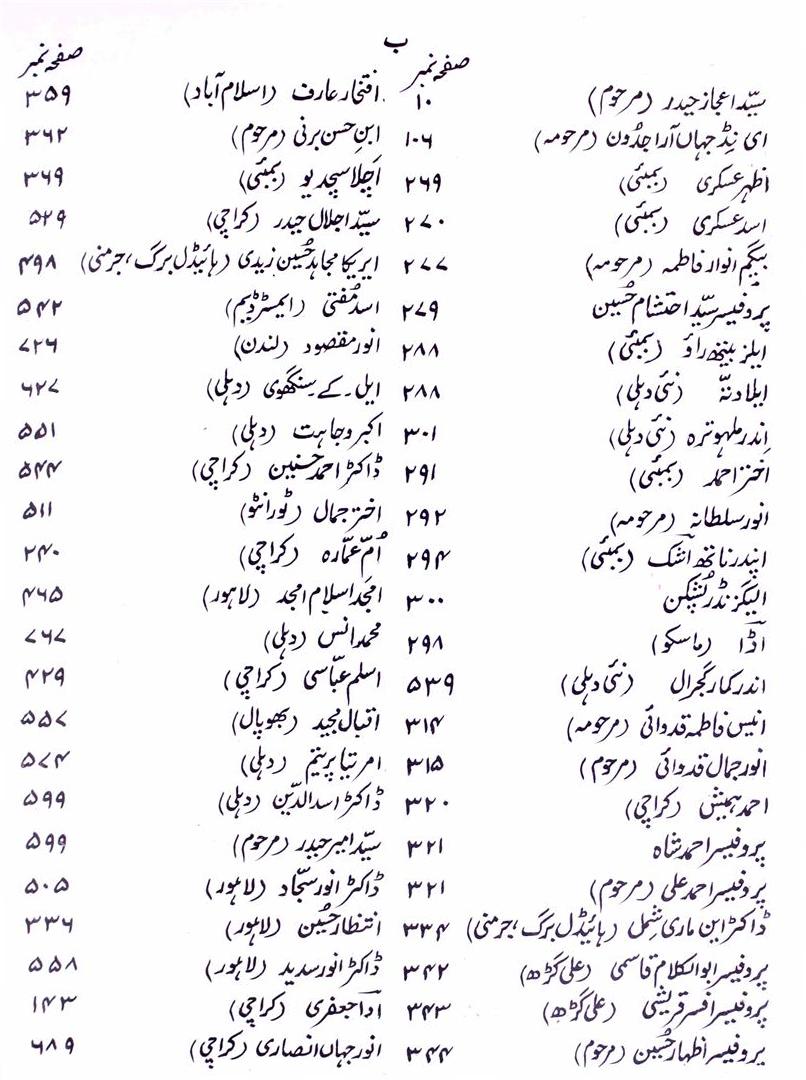 ب
صفحہ نمبر
سیّد اعجاز حیدر (مرحوم) ۱۰
ای نِڈ جہاں آرا جڈون (مرحومہ) ۱۰۶
اظہر عسکری (بمبئی) ۲۶۹
اسد عسکری (بمبئی) ۲۷۰
بیگم انوار فاطمہ (مرحومہ) ۲۷۷
پروفیسر سیّد احتشام حُسین ۲۷۹
ایلزبیتھ راؤ (بمبئی) ۲۸۸
ایلا دتّہ (نئی دہلی) ۲۸۸
اِندر ملہوترہ (نئی دہلی) ۳۰۱
اختر احمد (بمبئی) ۲۹۱
انور سلطانہ (مرحومہ) ۲۹۲
اپندر ناتھ اشک (بمبئی) ۲۹۴
الیگزنڈر پُشکن ۳۰۰
اڈا (ماسکو) ۲۹۸
اندر کمار گجرال (نئی دہلی) ۵۳۹
انیس فاطمہ قدوائی (مرحومہ) ۳۱۴
انور جمال قدوائی (مرحوم) ۳۱۵
احمد ہمیش (کراچی) ۳۲۰
پروفیسر احمد شاہ ۳۲۱
پروفیسر احمد علی (مرحوم) ۳۲۱
ڈاکٹر این ماری شِمل (ہائیڈل برگ، جرمنی) ۳۳۴
پروفیسر ابوالکلام قاسمی (علی گڑھ) ۳۴۲
پروفیسر افسر قریشی (علی گڑھ) ۳۴۳
پروفیسر اظہار حُسین (مرحوم) ۳۴۴
صفحہ نمبر
افتخار عارف (اسلام آباد) ۳۵۹
ابنِ حسن برنی (مرحوم) ۳۶۲
اَچلا سچدیو (بمبئی) ۳۶۹
سیّد اجلال حیدر (کراچی) ۵۲۹
ایریکا مجاہد حُسین زیدی (ہائیڈل برگ، جرمنی) ۴۹۸
اسد مُفتی (ایمسٹرڈیم) ۵۴۲
انور مقصود (لندن) ۷۲۶
ایل۔ کے۔ سنگھوی (دہلی) ۶۲۷
اکبر وجاہت (دہلی) ۵۵۱
ڈاکٹر احمد حسنین (کراچی) ۵۴۴
اختر جمال (ٹورانٹو) ۵۱۱
اُمِّ عمّارہ (کراچی) ۲۴۰
امجد اسلام امجد (لاہور) ۴۶۵
محمد انس (دہلی) ۷۶۷
اسلم عبّاسی (کراچی) ۴۲۹
اقبال مجید (بھوپال) ۵۵۷
امرتا پریتم (دہلی) ۵۷۴
ڈاکٹر اسد الدّین (دہلی) ۵۹۹
سیّد امیر حیدر (مرحوم) ۵۹۹
ڈاکٹر انور سجّاد (لاہور) ۵۰۵
انتظار حُسین (لاہور) ۳۳۶
ڈاکٹر انور سدید (لاہور) ۵۵۸
ادا جعفری (کراچی) ۱۴۳
انور جہاں انصاری (کراچی) ۶۸۹